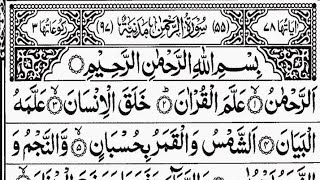 اٰیَاتُهَا ٧٨ (٥٥) سُوْرَةُ الرَّحْمٰنِ مَدَنِیَّةٌ (٩٧) رُكُوْعَاتُهَا ٣
بِسْمِ اللّٰهِ الرَّحْمٰنِ الرَّحِیْمِ
اَلرَّحْمٰنُ ۙ﴿١﴾ عَلَّمَ الْقُرْاٰنَ ؕ﴿٢﴾ خَلَقَ الْاِنْسَانَ ۙ﴿٣﴾ عَلَّمَهُ
الْبَیَانَ ﴿٤﴾ اَلشَّمْسُ وَ الْقَمَرُ بِحُسْبَانٍ ﴿٥﴾ وَّ النَّجْمُ وَ